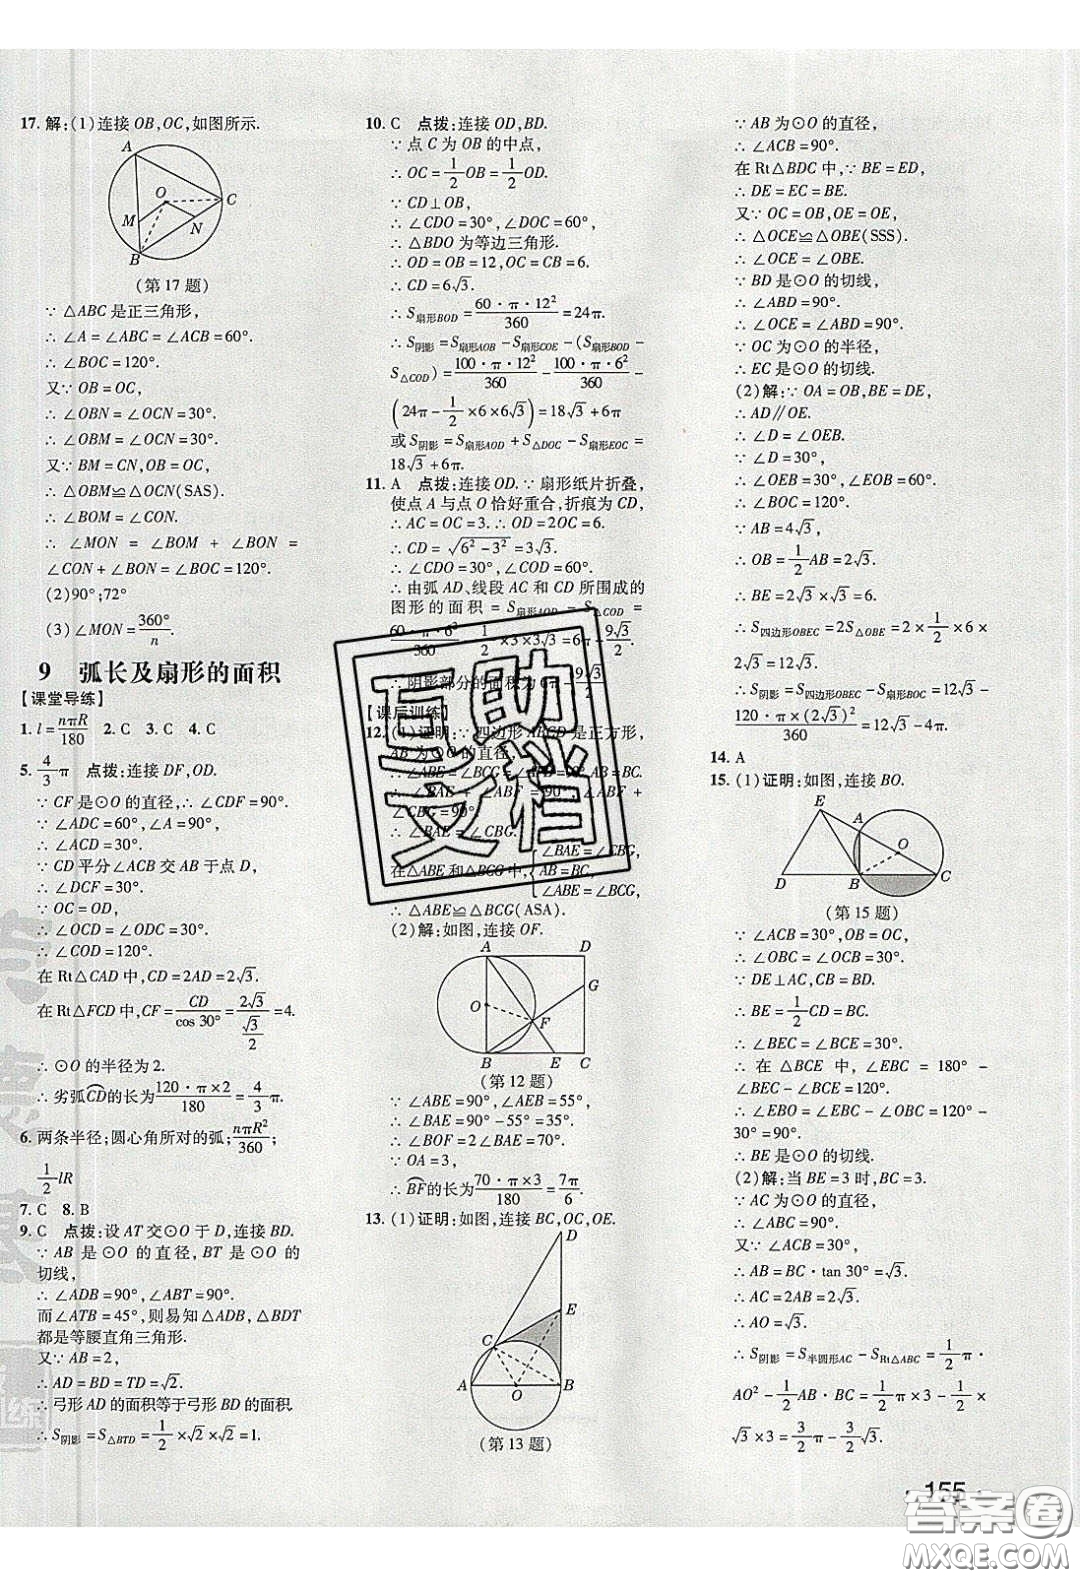 17. 解:(1)连接 OB,OC,如图所示.
A
O
C
M
N
B
(第 17 题)
∵ △ABC 是正三角形,
∴ ∠A = ∠ABC = ∠ACB = 60°.
∴ ∠BOC = 120°.
又∵ OB = OC,
∴ ∠OBN = ∠OCN = 30°.
∴ ∠OBM = ∠OCN = 30°.
又∵ BM = CN, OB = OC,
∴ △OBM≌△OCN(SAS).
∴ ∠BOM = ∠CON.
∴ ∠MON = ∠BOM + ∠BON =
∠CON + ∠BON = ∠BOC = 120°.
(2)90°;72°
(3)∠MON = 360°/n.
9 弧长及扇形的面积
【课堂导练】
1. l = nπR/180 2. C 3. C 4. C
5. 4/3 π 点拨:连接 DF,OD.
∵ CF 是⊙O 的直径,∴ ∠CDF = 90°.
∵ ∠ADC = 60°,∠A = 90°,
∴ ∠ACD = 30°.
∵ CD 平分∠ACB 交 AB 于点 D,
∴ ∠DCF = 30°.
∵ OC = OD,
∴ ∠OCD = ∠ODC = 30°.
∴ ∠COD = 120°.
在 Rt△CAD 中,CD = 2AD = 2√3.
在 Rt△FCD 中,CF = CD/cos 30° = 2√3/(√3/2) = 4.
∴ ⊙O 的半径为 2.
∴ 劣弧CD的长为 120·π×2/180 = 4/3 π.
6. 两条半径;圆心角所对的弧; nπR²/360;
1/2 lR
7. C 8. B
9. C 点拨:设 AT 交⊙O 于 D,连接 BD.
∵ AB 是 ⊙O 的直径,BT 是 ⊙O 的
切线,
∴ ∠ADB = 90°,∠ABT = 90°.
而∠ATB = 45°,则易知△ADB,△BDT
都是等腰直角三角形.
又∵ AB = 2,
∴ AD = BD = TD = √2.
∴ 弓形 AD 的面积等于弓形 BD 的面积.
∴ S阴影 = S△BTD = 1/2 × √2 × √2 = 1.
10. C 点拨:连接 OD,BD.
∵ 点 C 为 OB 的中点,
∴ OC = 1/2 OB = 1/2 OD.
∵ CD⊥OB,
∴ ∠CDO = 30°,∠DOC = 60°.
∴ △BDO 为等边三角形.
∴ OD = OB = 12,OC = CB = 6.
∴ CD = 6√3.
∴ S扇形BOD = 60·π·12²/360 = 24π.
∴ S阴影 = S扇形AOB − S扇形COE − (S扇形BOD −
S△COD) = 100·π·12²/360 − 100·π·6²/360 −
(24π − 1/2 × 6 × 6√3) = 18√3 + 6π
或 S阴影 = S扇形AOD + S△DOC − S扇形EOC =
18√3 + 6π.
11. A 点拨:连接 OD.∵ 扇形纸片折叠,
使点 A 与点 O 恰好重合,折痕为 CD,
∴ AC = OC = 3.∴ OD = 2OC = 6.
∴ CD = √(6² − 3²) = 3√3.
∴ 由弧 AD、线段 AC 和 CD 所围成的
图形的面积 = S扇形AOD − S△COD =
60·π·6²/360 − 1/2 × 3 × 3√3 = 6π − 9√3/2
∴ 阴影部分的面积为 6π − 9√3/2
【课后训练】
12. (1)证明:∵ 四边形 ABCD 是正方形,
AB 为⊙O 的直径,
∴ ∠ABE = ∠BCG = 90°.
∴ ∠BAE = ∠CBG.
在△ABE 和△BCG 中, {∠BAE = ∠CBG,
AB = BC,
∠ABE = ∠BCG,
∴ △ABE≌△BCG(ASA).
(2)解:如图,连接 OF.
A
D
G
O
F
B
E
C
(第 12 题)
∵ ∠ABE = 90°,∠AEB = 55°,
∴ ∠BAE = 90° − 55° = 35°.
∴ ∠BOF = 2∠BAE = 70°.
∵ OA = 3,
∴ BF的长为 70·π×3/180 = 7π/6.
13. (1)证明:如图,连接 BC,OC,OE.
D
E
C
A
O
B
(第 13 题)
∵ AB 为⊙O 的直径,
∴ ∠ACB = 90°.
在 Rt△BDC 中,∵ BE = ED,
∴ DE = EC = BE.
又∵ OC = OB,OE = OE,
∴ △OCE≌△OBE(SSS).
∴ ∠OCE = ∠OBE.
∵ BD 是⊙O 的切线,
∴ ∠ABD = 90°.
∴ ∠OCE = ∠ABD = 90°.
∵ OC 为⊙O 的半径,
∴ EC 是⊙O 的切线.
(2)解:∵ OA = OB,BE = DE,
∴ AD∥OE.
∴ ∠D = ∠OEB.
∵ ∠D = 30°,
∴ ∠OEB = 30°,∠EOB = 60°.
∴ ∠BOC = 120°.
∵ AB = 4√3,
∴ OB = 1/2 AB = 2√3.
∴ BE = 2√3 × √3 = 6.
∴ S四边形OBEC = 2S△OBE = 2 × 1/2 × 6 ×
2√3 = 12√3.
∴ S阴影 = S四边形OBEC − S扇形BOC = 12√3 −
120·π×(2√3)²/360 = 12√3 − 4π.
14. A
15. (1)证明:如图,连接 BO.
E
A
O
D
B
C
(第 15 题)
∵ ∠ACB = 30°,OB = OC,
∴ ∠OBC = ∠OCB = 30°.
∵ DE⊥AC,CB = BD,
∴ BE = 1/2 CD = BC.
∴ ∠BEC = ∠BCE = 30°.
∴ 在 △BCE 中, ∠EBC = 180° −
∠BEC − ∠BCE = 120°.
∴ ∠EBO = ∠EBC − ∠OBC = 120° −
30° = 90°.
∴ BE 是⊙O 的切线.
(2)解:当 BE = 3 时,BC = 3.
∵ AC 为⊙O 的直径,
∴ ∠ABC = 90°.
又∵ ∠ACB = 30°,
∴ AB = BC·tan 30° = √3.
∴ AC = 2AB = 2√3.
∴ AO = √3.
∴ S阴影 = S半圆形AC − S Rt△ABC = 1/2 π ×
AO² − 1/2 AB·BC = 1/2 π × 3 − 1/2 ×
√3 × 3 = 3/2 π − 3/2 √3.
155
互助文档
答案圈
MXQE.COM